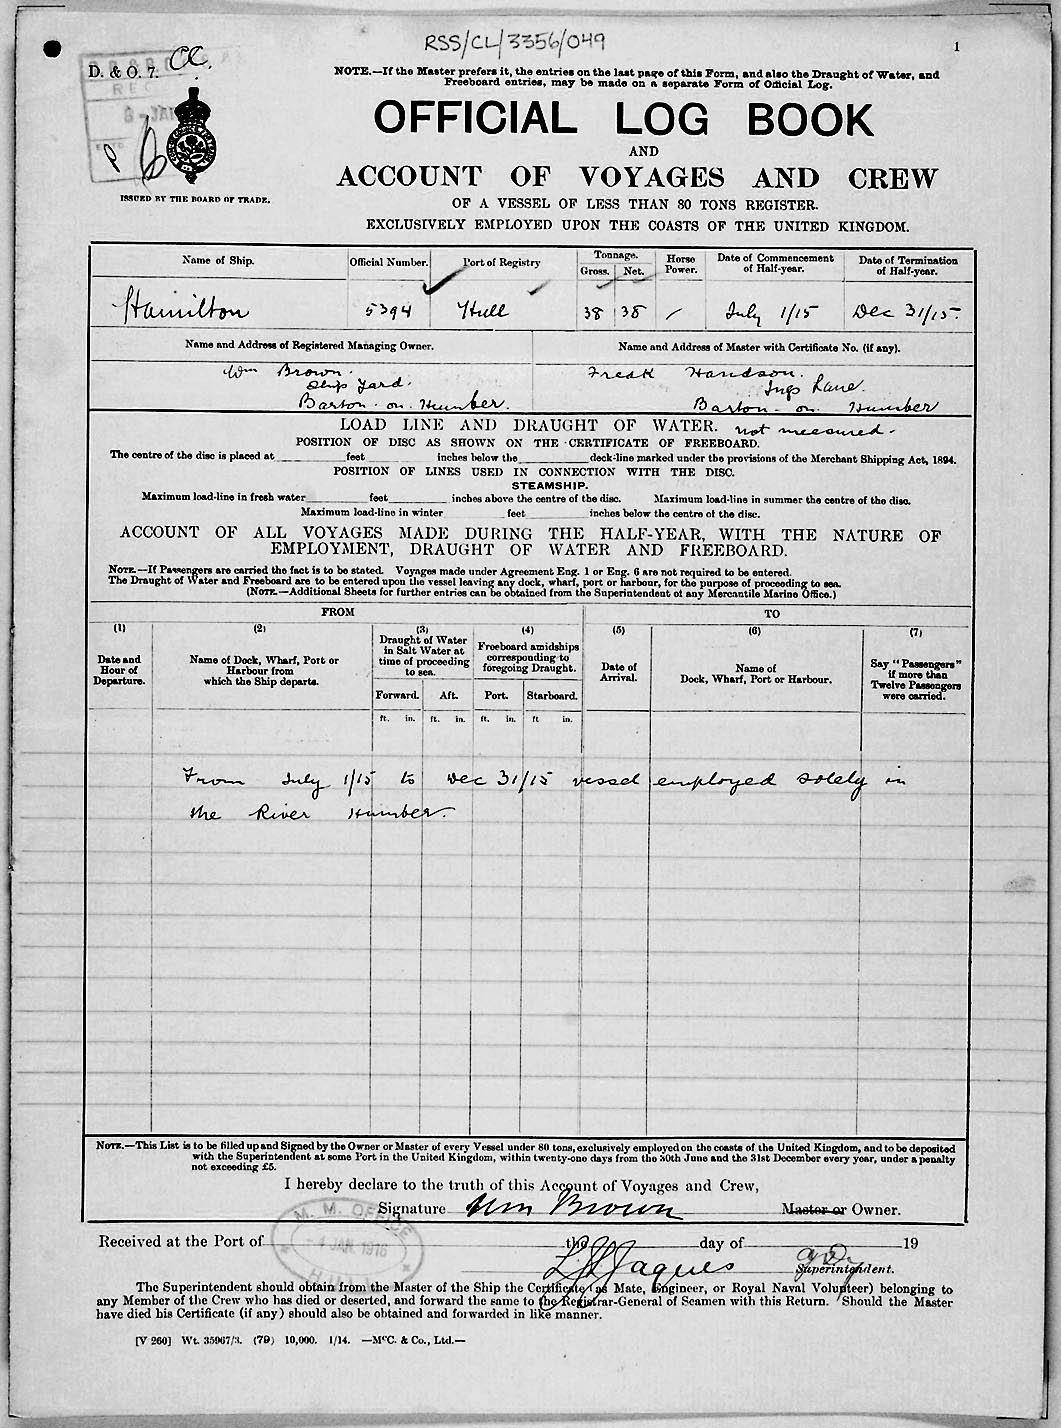 RSS/CL/3356/049
1
D. & O. 7.
CC.
NOTE.—If the Master prefers it, the entries on the last page of this Form, and also the Draught of Water, and
Freeboard entries, may be made on a separate Form of Official Log.
OFFICIAL LOG BOOK
AND
ACCOUNT OF VOYAGES AND CREW
OF A VESSEL OF LESS THAN 80 TONS REGISTER.
EXCLUSIVELY EMPLOYED UPON THE COASTS OF THE UNITED KINGDOM.
ISSUED BY THE BOARD OF TRADE.
Name of Ship. Official Number. Port of Registry Tonnage. Gross. Net. Horse Power. Date of Commencement of Half-year. Date of Termination of Half-year.
Hamilton 5394 Hull 38 38 / July 1/15 Dec 31/15.
Name and Address of Registered Managing Owner. Name and Address of Master with Certificate No. (if any).
Wm Brown. Fredk Handson.
Ship Yard. Ings Lane.
Barton-on-Humber. Barton-on-Humber
LOAD LINE AND DRAUGHT OF WATER. not measured.
POSITION OF DISC AS SHOWN ON THE CERTIFICATE OF FREEBOARD.
The centre of the disc is placed at feet inches below the deck-line marked under the provisions of the Merchant Shipping Act, 1894.
POSITION OF LINES USED IN CONNECTION WITH THE DISC.
STEAMSHIP.
Maximum load-line in fresh water feet inches above the centre of the disc. Maximum load-line in summer the centre of the disc.
Maximum load-line in winter feet inches below the centre of the disc.
ACCOUNT OF ALL VOYAGES MADE DURING THE HALF-YEAR, WITH THE NATURE OF
EMPLOYMENT, DRAUGHT OF WATER AND FREEBOARD.
NOTE.—If Passengers are carried the fact is to be stated. Voyages made under Agreement Eng. 1 or Eng. 6 are not required to be entered.
The Draught of Water and Freeboard are to be entered upon the vessel leaving any dock, wharf, port or harbour, for the purpose of proceeding to sea.
(NOTE.—Additional Sheets for further entries can be obtained from the Superintendent of any Mercantile Marine Office.)
FROM TO
(1) (2) (3) (4) (5) (6) (7)
Date and Hour of Departure.
Name of Dock, Wharf, Port or Harbour from which the Ship departs.
Draught of Water in Salt Water at time of proceeding to sea.
Freeboard amidships corresponding to foregoing Draught.
Date of Arrival.
Name of Dock, Wharf, Port or Harbour.
Say "Passengers" if more than Twelve Passengers were carried.
Forward. Aft. Port. Starboard.
ft. in. ft. in. ft. in. ft in.
From July 1/15 to Dec 31/15 vessel employed solely in
the River Humber.
NOTE.—This List is to be filled up and Signed by the Owner or Master of every Vessel under 80 tons, exclusively employed on the coasts of the United Kingdom, and to be deposited
with the Superintendent at some Port in the United Kingdom, within twenty-one days from the 30th June and the 31st December every year, under a penalty
not exceeding £5.
I hereby declare to the truth of this Account of Voyages and Crew,
Signature Wm Brown Master or Owner.
M. M. OFFICE
4 JAN. 1916
Received at the Port of the day of 19
Jaques Superintendent.
The Superintendent should obtain from the Master of the Ship the Certificate (as Mate, Engineer, or Royal Naval Volunteer) belonging to
any Member of the Crew who has died or deserted, and forward the same to the Registrar-General of Seamen with this Return. Should the Master
have died his Certificate (if any) should also be obtained and forwarded in like manner.
[V 260] Wt. 35967/3. (79) 10,000. 1/14. —McC. & Co., Ltd.—